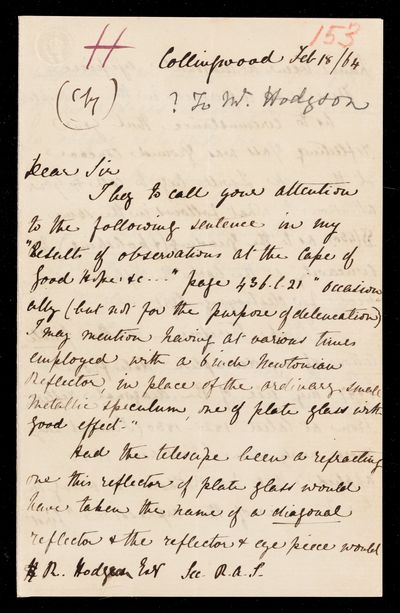 H
153
Collingwood Feb 18/64
(Cy)
? To Mr. Hodgson
Dear Sir
I beg to call your attention
to the following sentence in my
"Results of observations at the Cape of
Good Hope &c..." page 436.l.21 "occasion
ally (but not for the purpose of delineation)
I may mention having at various times
employed with a 6 inch Newtonian
Reflector, in place of the ordinary small
metallic speculum one of plate glass with
good effect."
Had the telescope been a refracting
one this reflector of plate glass would
have taken the name of a diagonal
reflector & the reflector & eye piece would
R. Hodgson Esq Sec R.A.S.